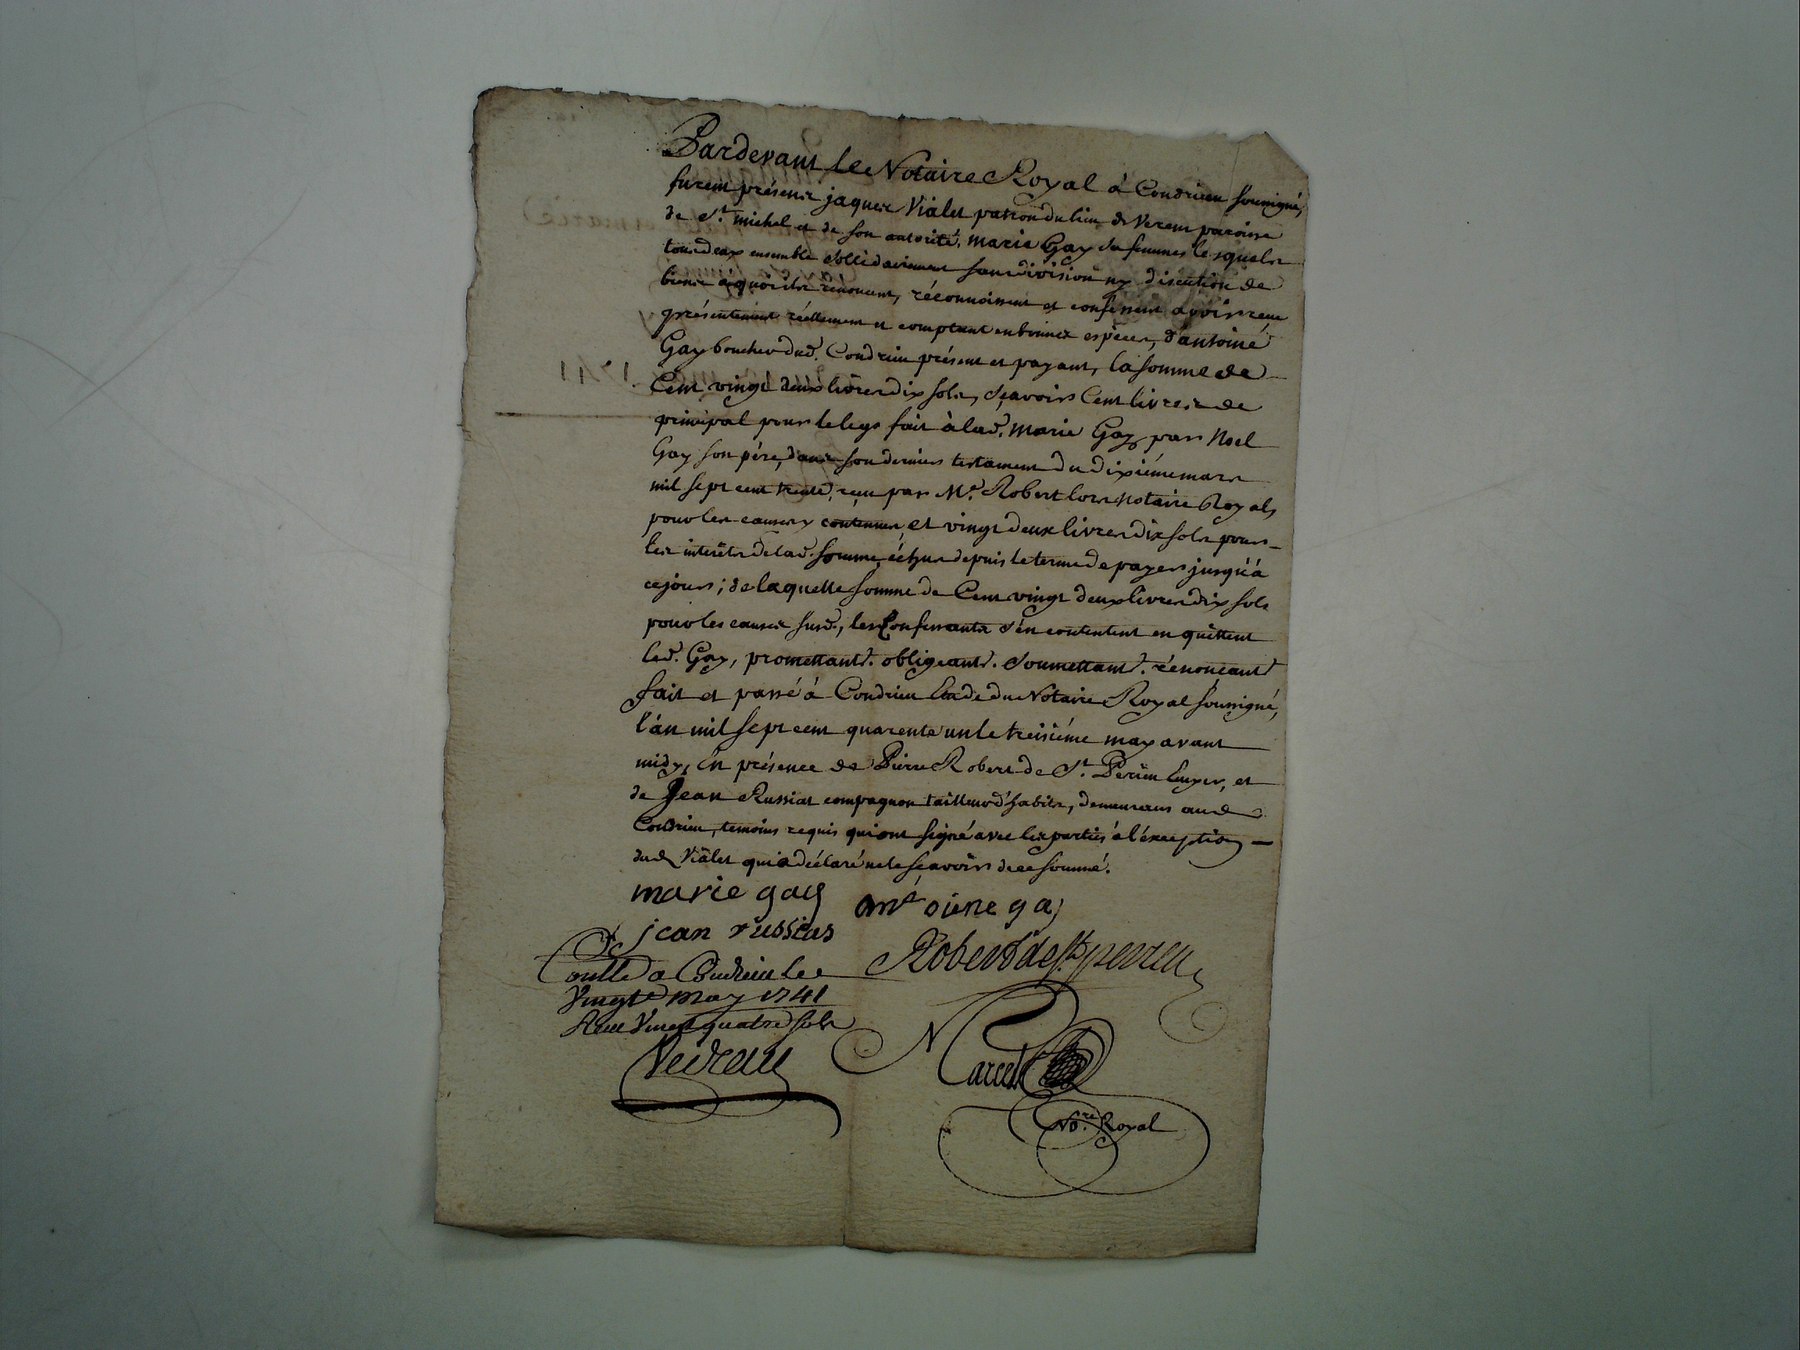 Pardevant le Notaire Royal à Condrieu soussigné,
furent présens jaques Vialet patron du lieu de Verem paroisse
de St. michel et de son autorité, marie Gay sa femme lesquels
tous deux ensemble sollidairement sans division ny discution de
biens à quoi ils renoncent, réconnoissent et confessent avoir reçu
présentement réellement et comptant en bonnes espèces, d'antoine
Gay boucher dud. Condrieu présent et payant, la somme de
Cent vingt deux livres dix sols, sçavoir Cent livres de
principal pour le legs fait à lad. marie Gay par Noel
Gay son père, dans son dernier testament du dixiéme mars
mil sept cent trente, reçu par Me. Robert lors Notaire Royal,
pour les causes y contenues, et vingt deux livres dix sols pour
les interêts de lad. somme échus depuis le terme de payer jusqu'à
ce jour; de laquelle somme de Cent vingt deux livres dix sols
pour les causes susd., les Confessants s'en contentent en quittent
led. Gay, promettant. obligeant. soumettant. rénonçant
fait et passé à Condrieu Etude du Notaire Royal soussigné,
l'an mil sept cent quarente un le treiziéme may avant
midy, En présence de Pierre Robert de St. Perieu Ecuyer, et
de Jean Russias compagnon tailleur d'habits, demeurans aud.
Condrieu, temoins requis qui ont signé avec les parties à l'éxception
dud. Vialet qui a déclaré ne le sçavoir de ce sommé.
marie gay antoiene gay
jean russias
Robert de st perieu
Conllé a Condrieu le
Vingt may 1741
Reçu Vingt quatre sols
Marcel
Nore. Royal